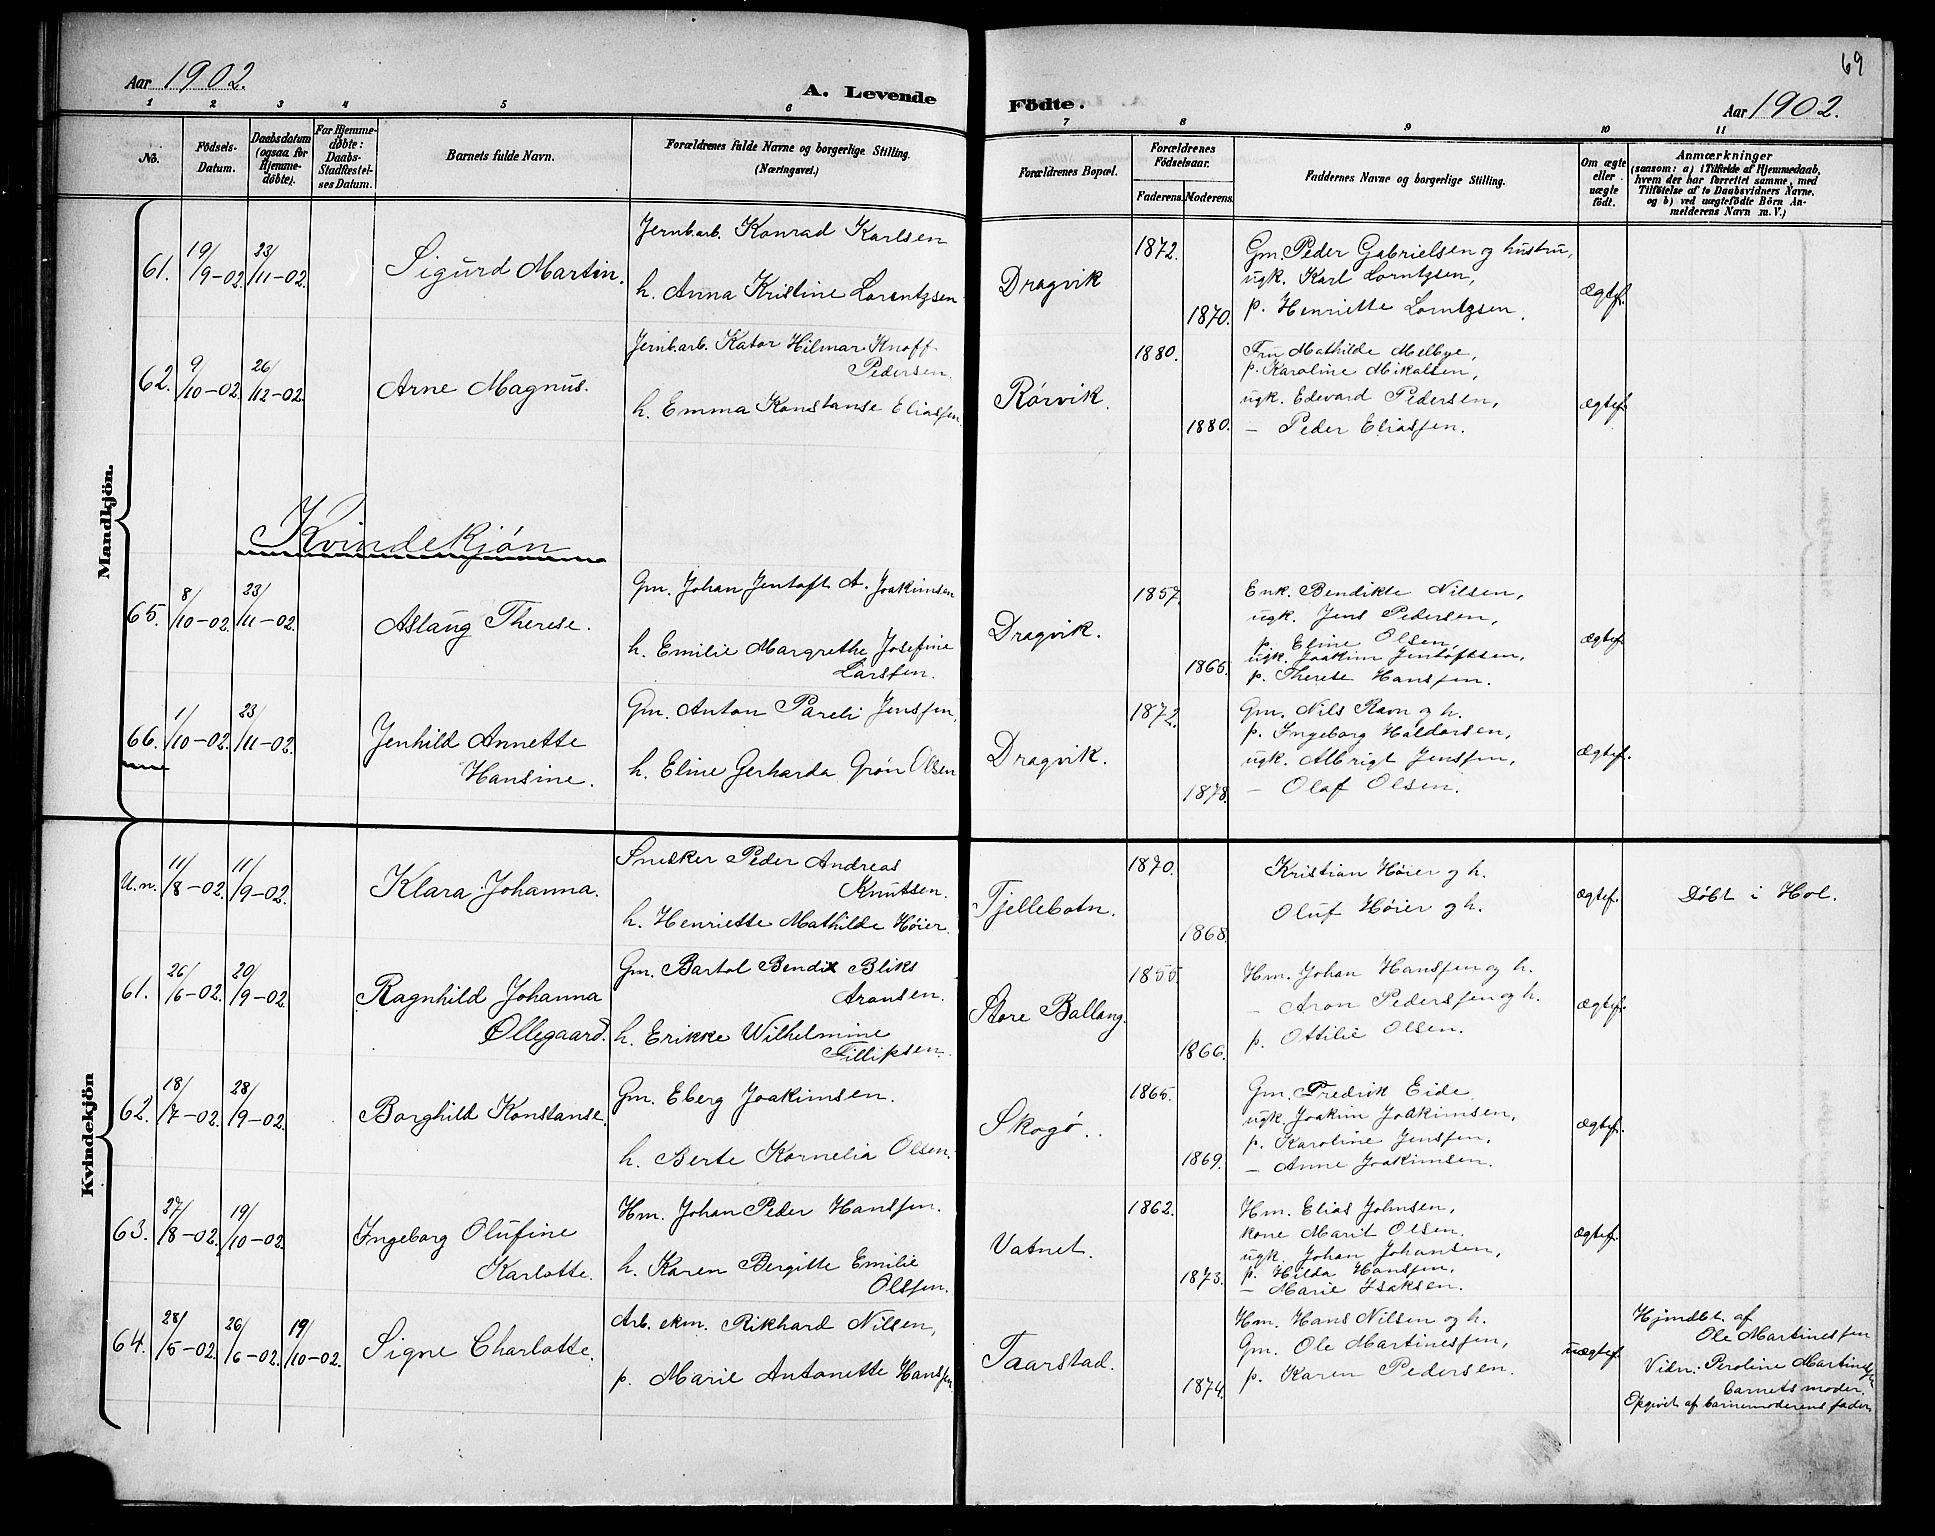 69
Aar 1902.
A. Levende
Födte.
Aar 1902.
1 2 3 4 5 6 7 8 9 10 11
No.
Födsels-
Datum.
Daabsdatum
(ogsaa for
Hjemme-
døbte).
For Hjemme-
døbte:
Daabs-
Stadfæstel-
ses Datum.
Barnets fulde Navn.
Forældrenes fulde Navne og borgerlige Stilling.
(Næringsvei.)
Forældrenes Bopæl.
Forældrenes
Födselsaar.
Faderens. Moderens.
Faddernes Navne og borgerlige Stilling.
Om ægte
eller
uægte
födt.
Anmærkninger
(saasom: a) i Tilfælde af Hjemmedaab,
hvem der har forrettet samme, med
Tilföielse af to Daabsvidners Navne.
og b) ved uægtefödte Börn An-
melderens Navn m. V.)
Mandkjön.
61. 19/9-02. 23/11-02. Sigurd Martin.
Jernb.arb. Konrad Karlsen
h. Anna Kristine Lorentzsen
Dragvik
1872.
1870.
Gm. Peder Gabrielsen og hustru,
ugk. Karl Lorntzsen,
p. Henriette Lorntzsen.
Ægtef.
62. 9/10-02. 26/12-02. Arne Magnus.
Jernb.arb. Kator Hilmar Knoff
Pedersen.
h. Emma Konstanse Eliassen
Rørvik.
1880.
1880.
Fru Mathilde Melbye,
p. Karoline Mikalsen,
ugk. Edevard Pedersen,
- Peder Eliassen.
ægtef.
Kvindekjøn
65. 8/10-02. 23/11-02. Aslaug Therese.
Gm. Johan Jentoft A. Joakimsen
h. Emilie Margrethe Josefine
Larssen.
Dragvik.
1857.
1865.
Enk. Bendikte Nilsen,
ugk. Jens Pedersen,
p. Eline Olsen,
ugk. Joakim Jentoftsen,
p. Therese Hanssen.
ægtef.
66. 1/10-02. 23/11-02. Jenhild Annette
Hansine.
Gm. Anton Pareli Jenssen,
h. Eline Gerharda Grøn Olsen
Dragvik.
1872.
1878.
Gm. Nils Ravn og h.
p. Ingeborg Haldorsen,
ugk. Albrigt Jenssen,
- Olaf Olsen.
ægtef.
Kvindekjön
U.n. 11/8-02. 11/9-02. Klara Johanna.
Snedker Peder Andreas
Knutsen.
h. Henriette Mathilde Høier.
Tjellebotn.
1870.
1868.
Kristian Høier og h.
Oluf Høier og h.
ægtef.
Døbt i Hol.
61. 26/6-02. 20/9-02. Ragnhild Johanna
Øllegaard.
Gm. Bartol Bendix Bliks
Aronsen.
h. Erikke Wilhelmine
Fillipsen.
Store Ballang.
1855.
1866.
Hm. Johan Hanssen og h.
- Aron Pederssen og h.
p. Ottilie Olsen.
ægtef.
62. 18/7-02. 28/9-02. Borghild Konstanse.
Gm. Eberg Joakimsen.
h. Berte Kornelia Olsen.
Skogø.
1865.
1869.
Gm. Fredrik Eide
ugk. Joakim Joakimsen,
p. Karoline Jenssen,
- Anne Joakimsen.
ægtef.
63. 27/8-02. 19/10-02. Ingeborg Olufine
Karlotte.
Hm. Johan Peder Hanssen.
h. Karen Bergitte Emilie
Olssen.
Vatnet.
1862.
1873.
Hm. Elias Johnsen,
kone Marit Olsen.
ugk. Johan Johansen,
p. Hilda Hanssen,
- Marie Isaksen.
ægtef.
64. 28/5-02. 26/6-02. 19/10-02. Signe Charlotte.
Arb. ekm. Rikhard Nilsen,
p. Marie Antonette Hanssen
Taarstad.
1874.
Hm. Hans Nilsen og h.
Gm. Ole Martinessen,
p. Karen Pedersen.
uægtef.
Hjmdbt af
Ole Martinessen
Vidn: Peroline Martinessen
barnets moder.
Opgivet af barnemoderens fader.